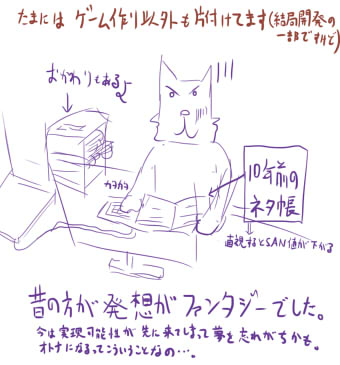 たまには ゲーム作り以外も片付けてます(結局開発の
一部ですけど)
おかわりもあるよ
カタカタ
10年前の
ネタ帳
直視するとSAN値が下がる
昔の方が発想がファンタジーでした。
今は実現可能性が先に来てしまって夢を忘れがちかも。
オトナになるってこういうことなの…。